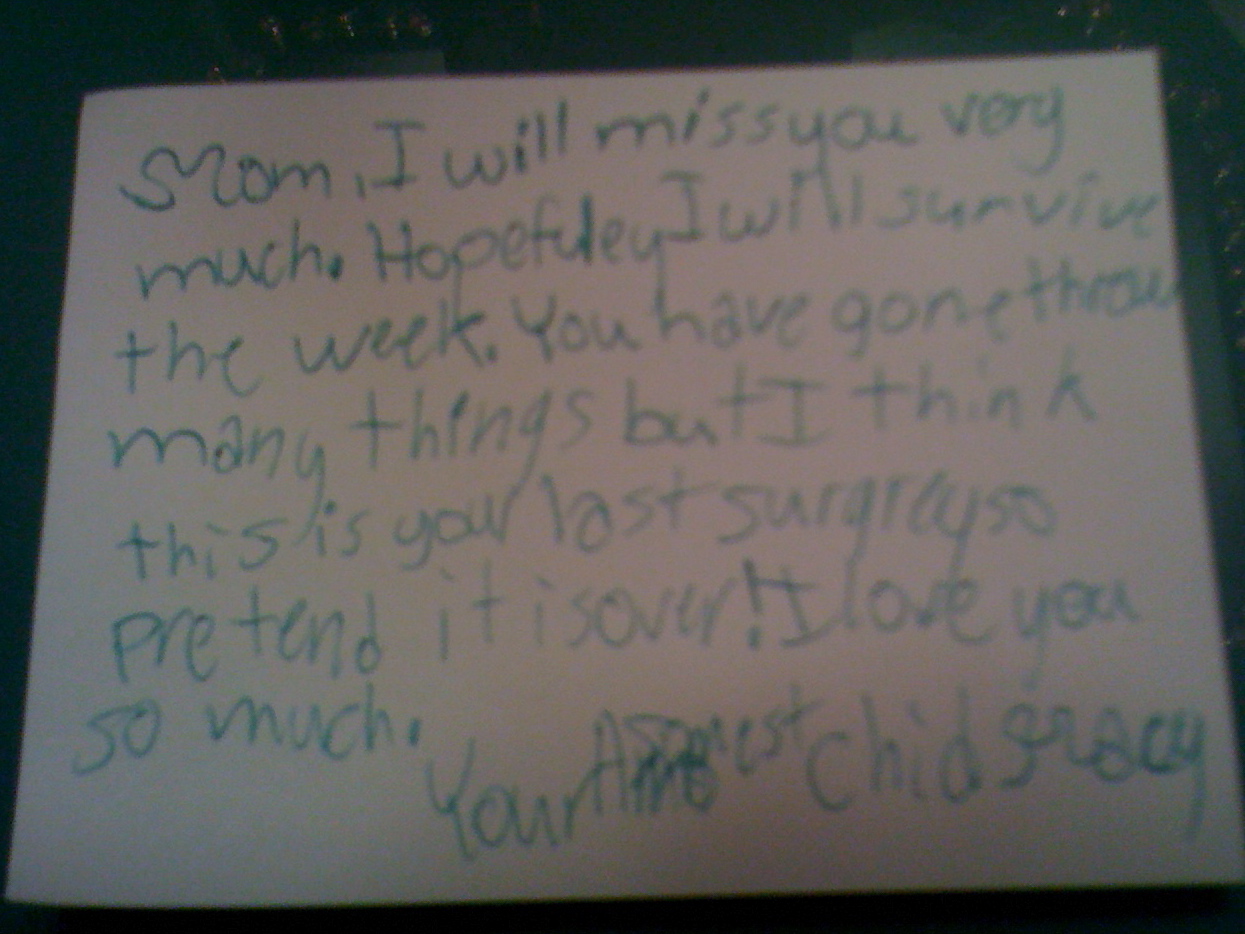 Mom, I will miss you very
much. Hopefuley I will survive
the week. You have gone throu
many things but I think
this is your last surgray so
pretend it is over! I love you
so much.
Your chid gracy